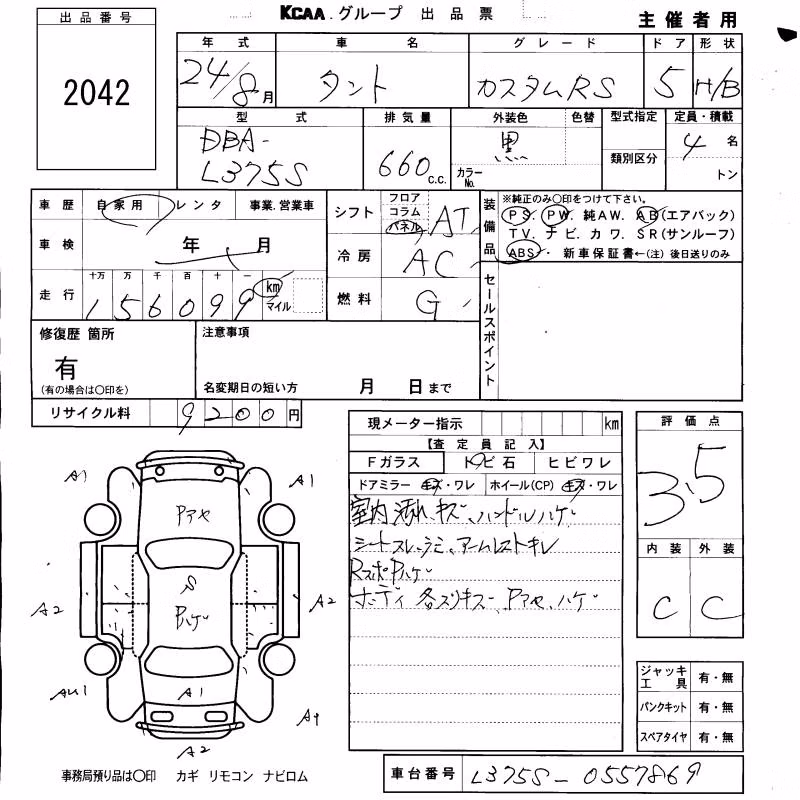 出品番号
2042
KCAA.グループ 出品票
主催者用
年式 車名 グレード ドア 形状
24/8月 タント カスタムRS 5 H/B
型式 排気量 外装色 色替 型式指定 定員・積載
DBA-
L375S 660 C.C. 黒 カラーNo. 類別区分 4名 トン
車歴 自家用 レンタ 事業.営業車
車検 年 月
走行 十万 万 千 百 十 一
156099 km マイル
シフト フロア コラム パネル AT
冷房 AC
燃料 G
装備品
※純正のみ○印をつけて下さい。
PS. PW. 純AW. AB(エアバック)
TV. ナビ. カワ. SR(サンルーフ)
ABS・ 新車保証書←(注) 後日送りのみ
セールスポイント
修復歴 箇所
有
(有の場合は○印を)
注意事項
名変期日の短い方 月 日まで
リサイクル料 9200円
現メーター指示 km
【査定員記入】
Fガラス トビ石 ヒビワレ
ドアミラー キズ・ワレ ホイール(CP) キズ・ワレ
室内 汚れ、キズ、ハンドルハゲ
シートスレ、ラミ、アームレストキレ
RスポPハゲ
ボディ 各スリキズ、Pアセ、ハゲ
評価点
3.5
内装 外装
C C
ジャッキ工具 有・無
パンクキット 有・無
スペアタイヤ 有・無
A1 A1
Pアセ
S
Pハゲ
A2 A2
A1
A2
事務局預り品は○印 カギ リモコン ナビロム
車台番号 L375S-0557869